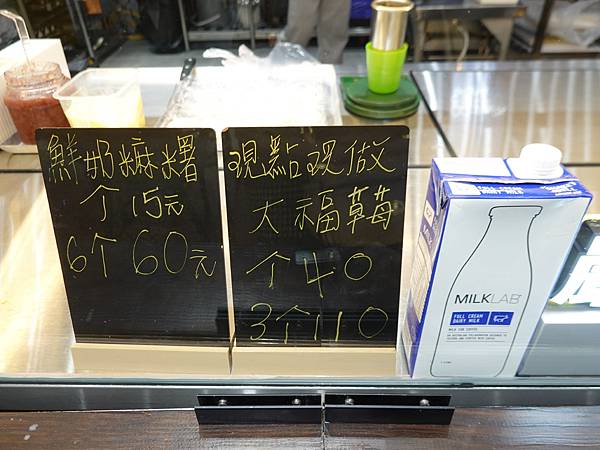 鮮奶嫲糬
个15元
6个60元
現點現做
大福草莓
个40
3个110
MILKLAB
FULL CREAM
DAIRY MILK
MILK FOR COFFEE